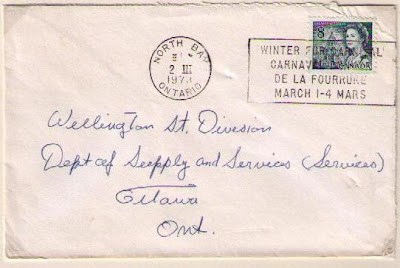 NORTH BAY
2 III
ONTARIO
8
WINTER FUR CARNIVAL
CARNAVAL
DE LA FOURRURE
MARCH 1-4 MARS
Wellington St. Division
Dept of Supply and Services (Services)
Ottawa
Ont.